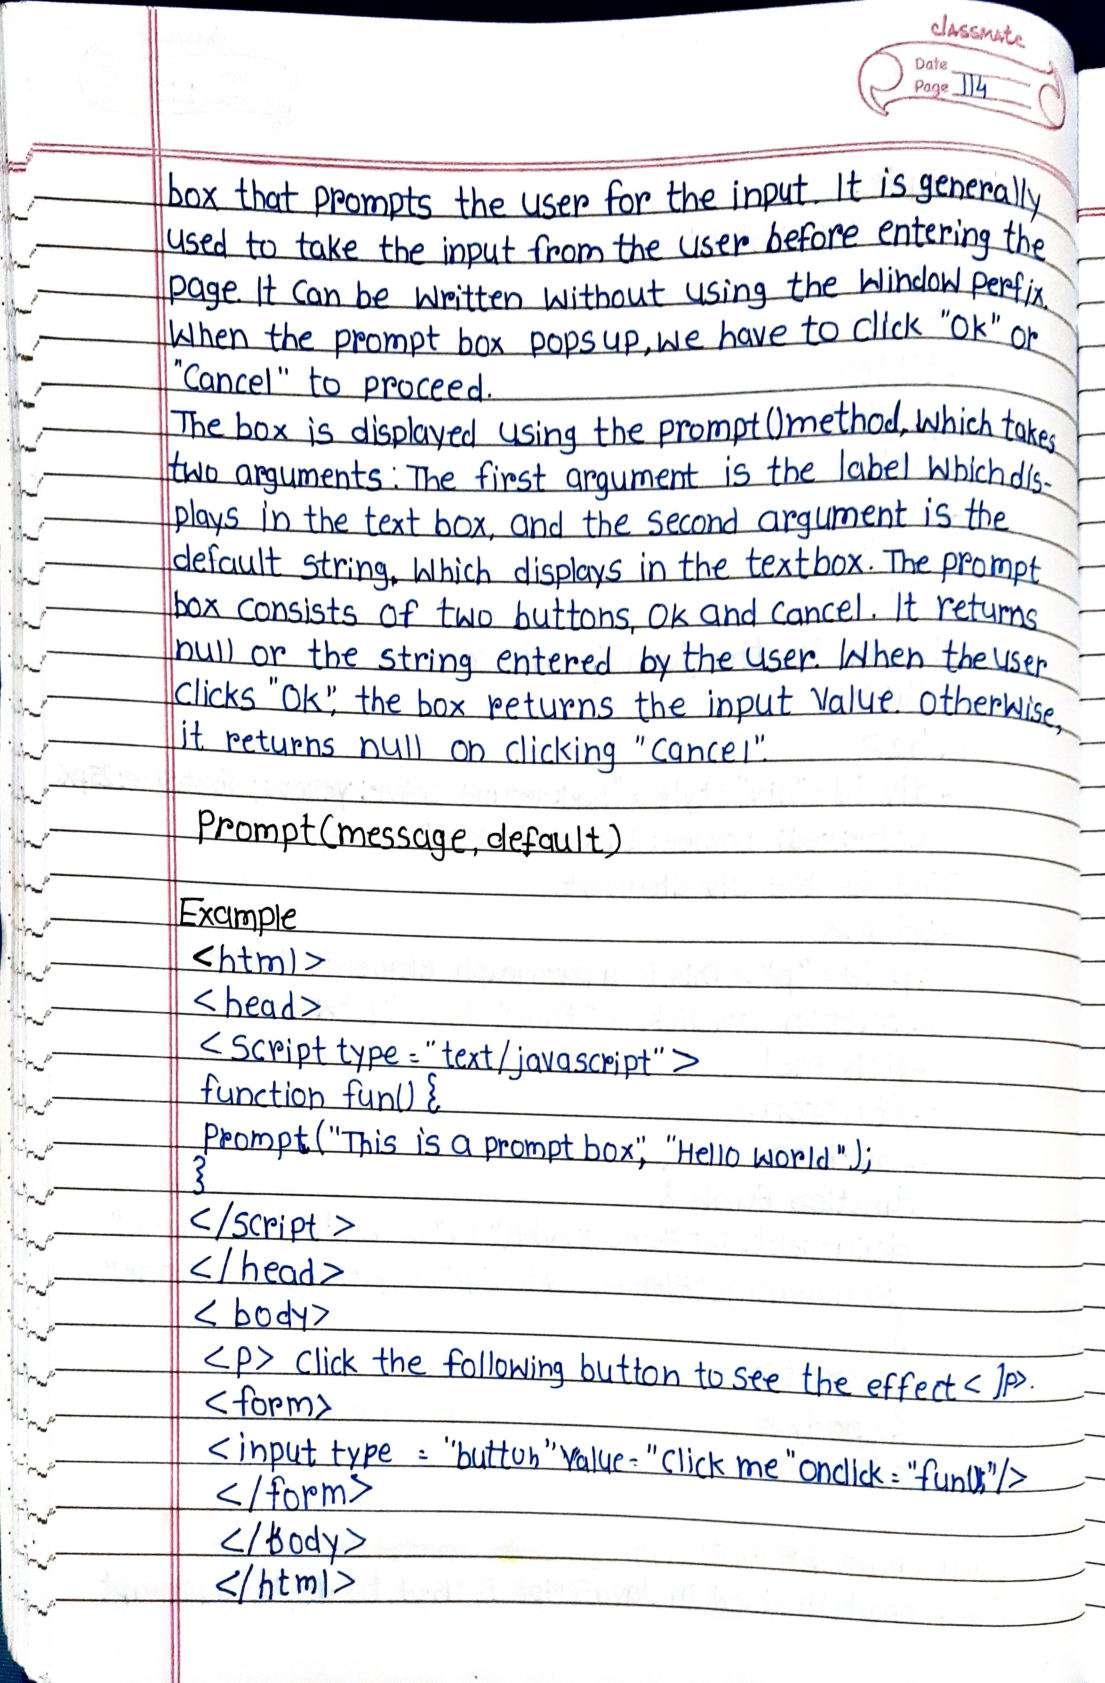 classmate
Date
Page 114
box that prompts the user for the input. It is generally
used to take the input from the user before entering the
page. It can be written without using the window perfix.
When the prompt box pops up, we have to click "OK" or
"Cancel" to proceed.
The box is displayed using the prompt() method, which takes
two arguments: The first argument is the label which dis-
plays in the text box, and the second argument is the
default string, which displays in the textbox. The prompt
box consists of two buttons, OK and Cancel. It returns
null or the string entered by the user. When the user
clicks "OK", the box returns the input value. otherwise,
it returns null on clicking "Cancel".
Prompt(message, default)
Example
<html>
<head>
<Script type = "text/javascript">
function fun() {
Prompt("This is a prompt box", "Hello world");
}
</script>
</head>
<body>
<p> Click the following button to see the effect < /p>.
<form>
<input type = "button" value = "Click me" onclick = "fun();"/>
</form>
</body>
</html>